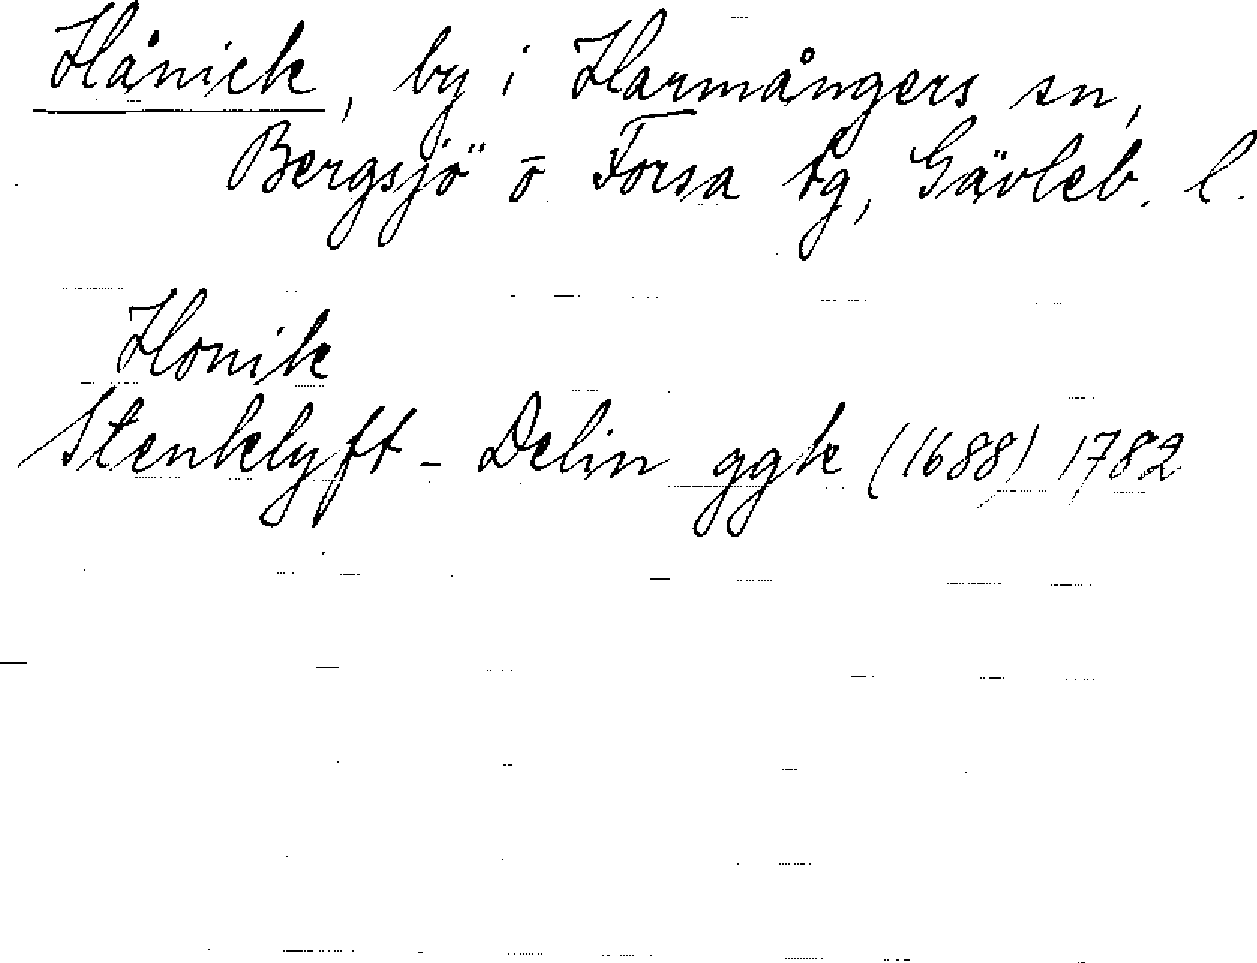 Hånick, by i Harmångers sn,
Bergsjö o Forsa tg, Gävleb. l.
Honik
Stenklyft - Delin ggk (1688) 1782